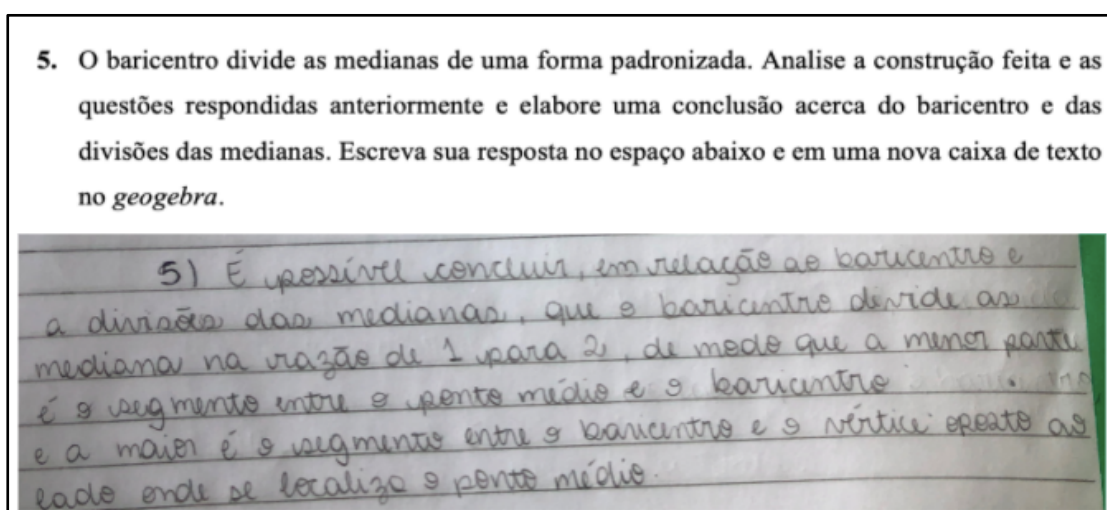 5. O baricentro divide as medianas de uma forma padronizada. Analise a construção feita e as
questões respondidas anteriormente e elabore uma conclusão acerca do baricentro e das
divisões das medianas. Escreva sua resposta no espaço abaixo e em uma nova caixa de texto
no geogebra.
5) É possível concluir, em relação ao baricentro e
a divisões das medianas, que o baricentro devide as
mediana na razão de 1 para 2, de modo que a menor parte
é o segmento entre o ponto médio e o baricentro
e a maior é o segmento entre o baricentro e o vértice oposto ao
lado onde se localiza o ponto médio.